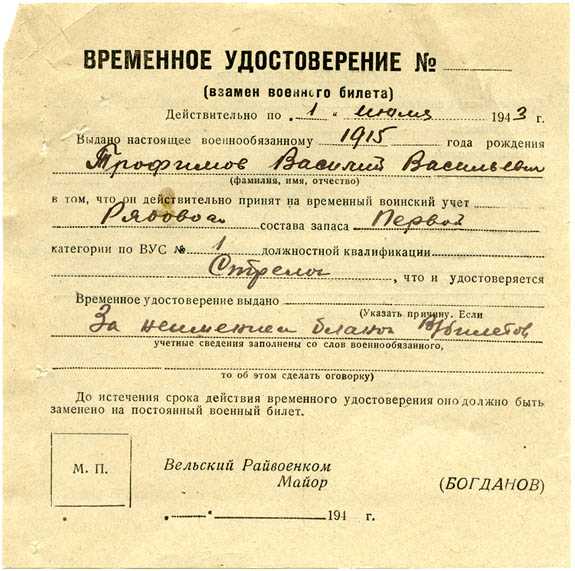 ВРЕМЕННОЕ УДОСТОВЕРЕНИЕ №
(взамен военного билета)
Действительно по „1" июля 1943 г.
Выдано настоящее военнообязанному 1915 года рождения
Трофимов Василий Васильевич
(фамилия, имя, отчество)
в том, что он действительно принят на временный воинский учет
Рядового состава запаса Первой
категории по ВУС № 1 должностной квалификации
Стрелок, что и удостоверяется
Временное удостоверение выдано
(Указать причину. Если
За неимением бланок В/билетов
учетные сведения заполнены со слов военнообязанного,
то об этом сделать оговорку)
До истечения срока действия временного удостоверения оно должно быть
заменено на постоянный военный билет.
М. П.
Вельский Райвоенком
Майор (БОГДАНОВ)
194 г.